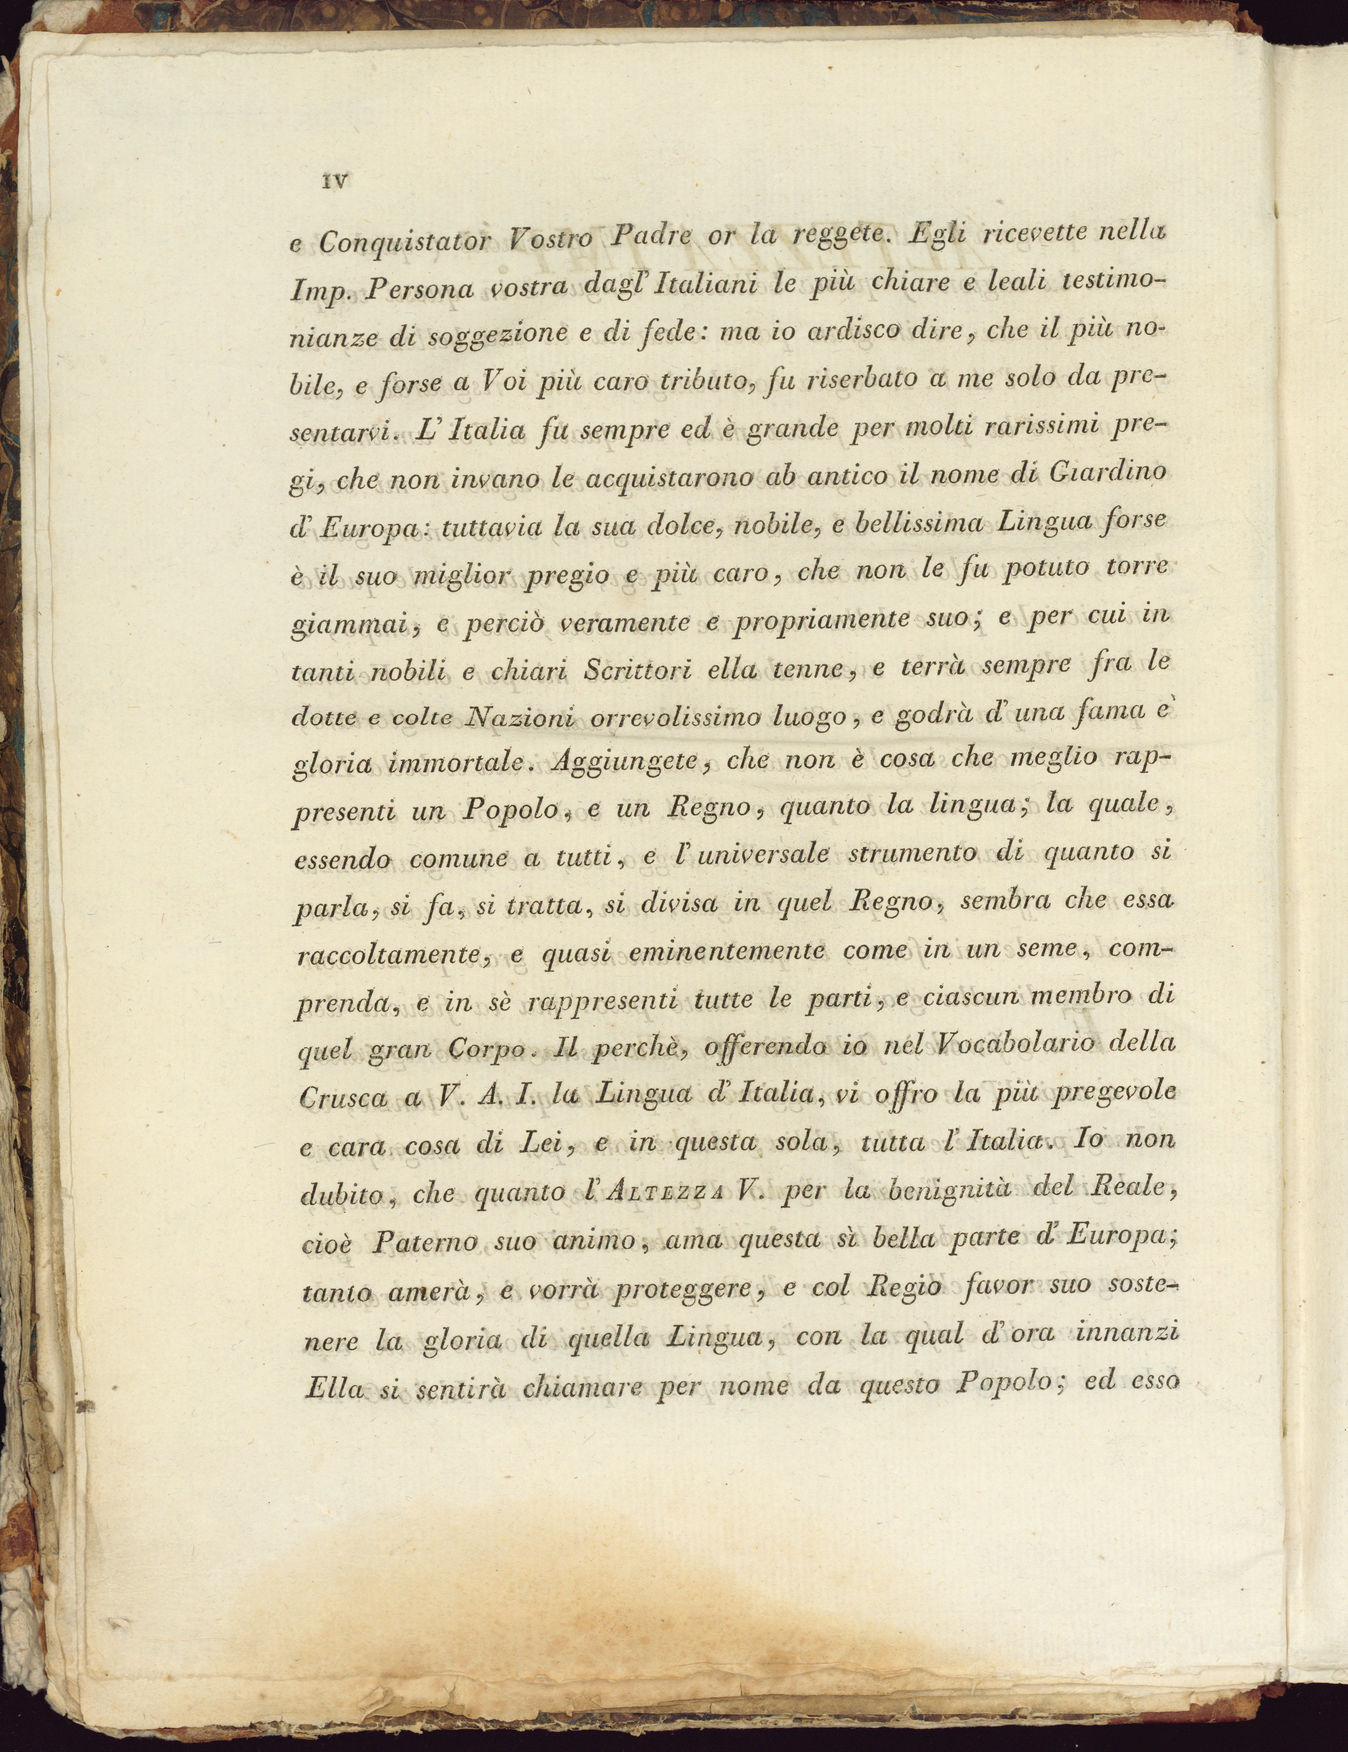 IV
e Conquistator Vostro Padre or la reggete. Egli ricevette nella
Imp. Persona vostra dagl' Italiani le più chiare e leali testimo-
nianze di soggezione e di fede: ma io ardisco dire, che il più no-
bile, e forse a Voi più caro tributo, fu riserbato a me solo da pre-
sentarvi. L' Italia fu sempre ed è grande per molti rarissimi pre-
gi, che non invano le acquistarono ab antico il nome di Giardino
d' Europa: tuttavia la sua dolce, nobile, e bellissima Lingua forse
è il suo miglior pregio e più caro, che non le fu potuto torre
giammai, e perciò veramente e propriamente suo; e per cui in
tanti nobili e chiari Scrittori ella tenne, e terrà sempre fra le
dotte e colte Nazioni orrevolissimo luogo, e godrà d' una fama è
gloria immortale. Aggiungete, che non è cosa che meglio rap-
presenti un Popolo, e un Regno, quanto la lingua; la quale,
essendo comune a tutti, e l' universale strumento di quanto si
parla, si fa, si tratta, si divisa in quel Regno, sembra che essa
raccoltamente, e quasi eminentemente come in un seme, com-
prenda, e in sè rappresenti tutte le parti, e ciascun membro di
quel gran Corpo. Il perchè, offerendo io nel Vocabolario della
Crusca a V. A. I. la Lingua d' Italia, vi offro la più pregevole
e cara cosa di Lei, e in questa sola, tutta l' Italia. Io non
dubito, che quanto l' ALTEZZA V. per la benignità del Reale,
cioè Paterno suo animo, ama questa sì bella parte d' Europa;
tanto amerà, e vorrà proteggere, e col Regio favor suo soste-
nere la gloria di quella Lingua, con la qual d' ora innanzi
Ella si sentirà chiamare per nome da questo Popolo; ed esso